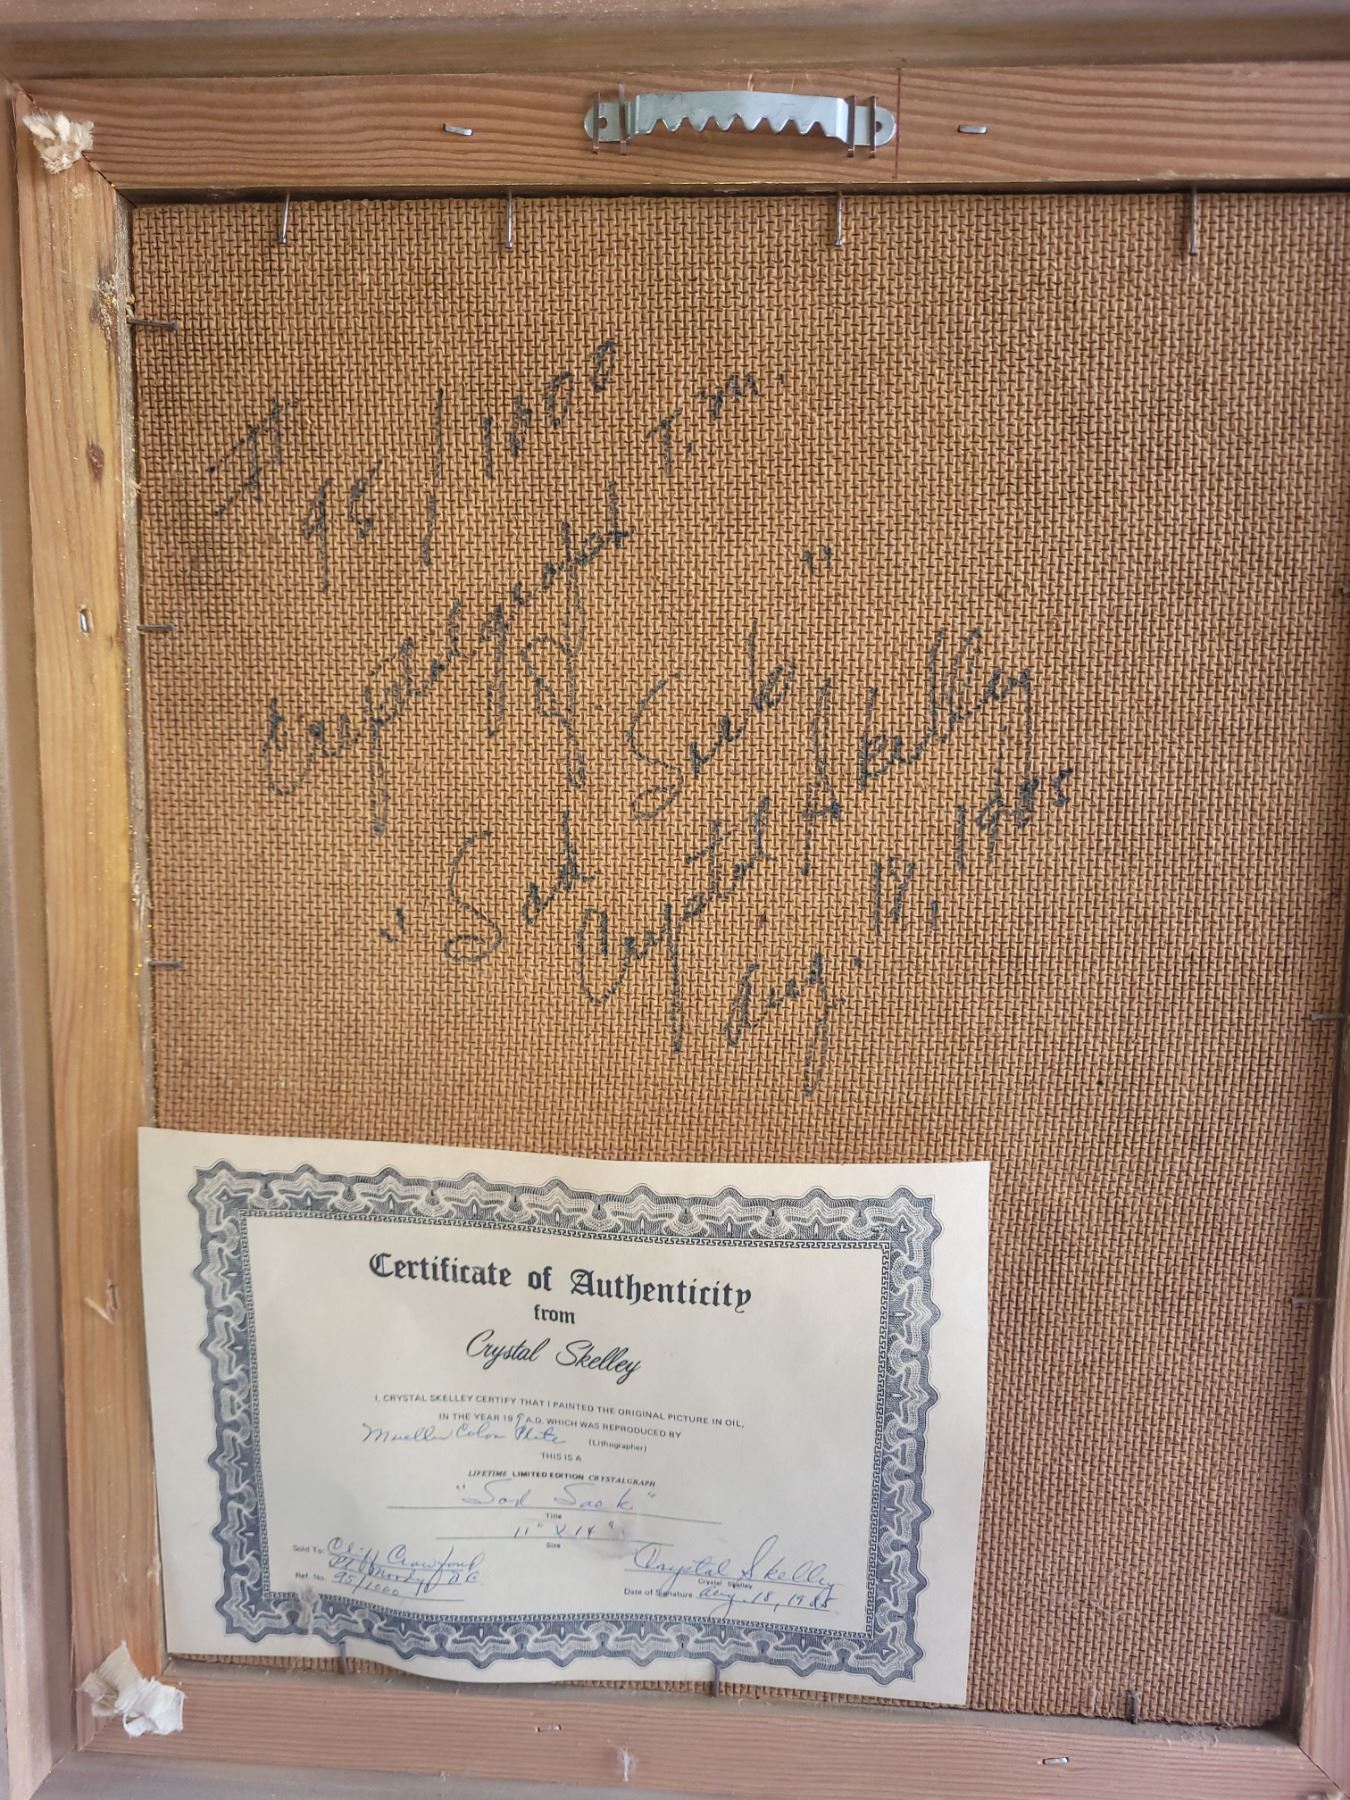 # 95/1000
Crystalgraph T.M.
"Sad Sack"
Crystal Skelley
Aug. 18, 1985
Certificate of Authenticity
from
Crystal Skelley
I, CRYSTAL SKELLEY CERTIFY THAT I PAINTED THE ORIGINAL PICTURE IN OIL,
IN THE YEAR 19 A.D. WHICH WAS REPRODUCED BY
Mueller Color Plate (Lithographer)
THIS IS A
LIFETIME LIMITED EDITION CRYSTALGRAPH
"Sad Sack"
Title
11" X 14"
Size
Sold To: Cliff Crawford
Pt Moody, B.C.
Ref. No. 95/1000
Crystal Skelley
Crystal Skelley
Date of Signature Aug. 18, 1985